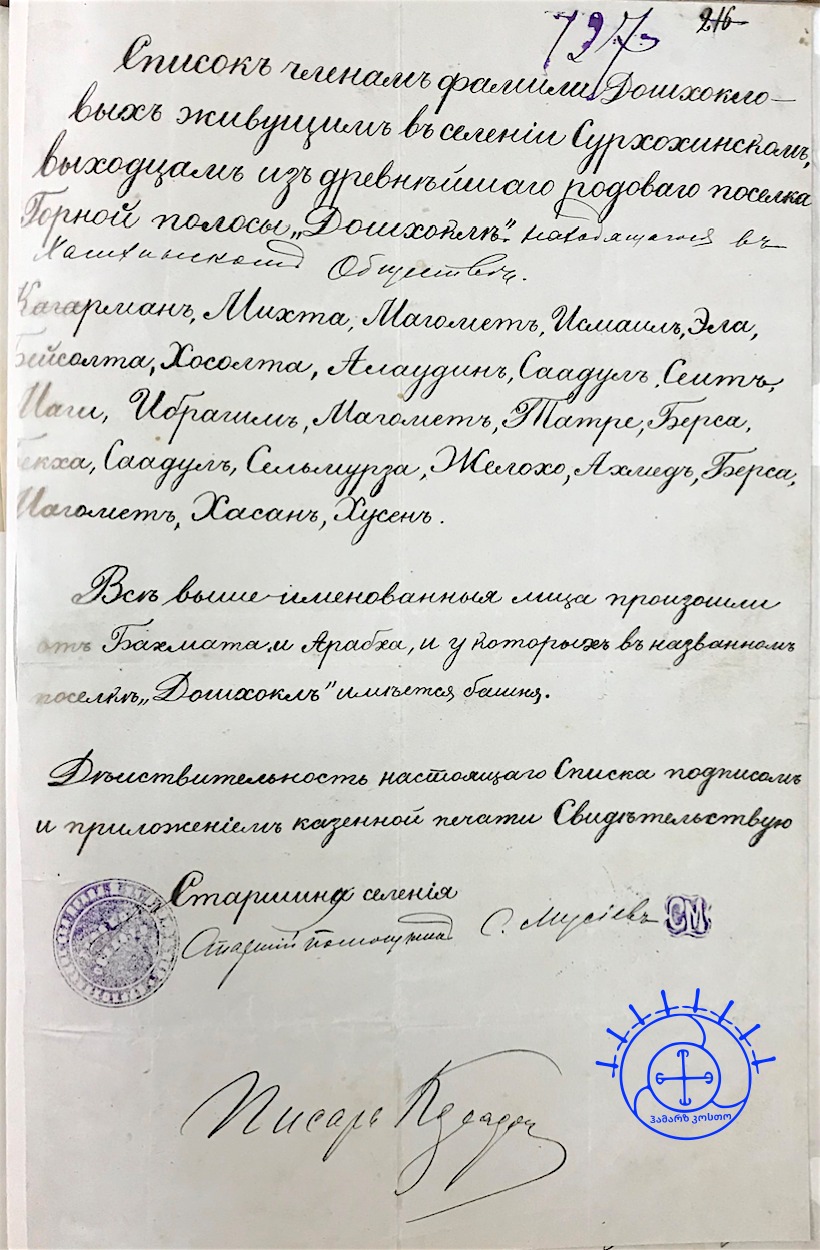 127
216
Списокъ членамъ фамилiи Дошхокло-
выхъ живущимъ въ селенiи Сурхохинскомъ,
выходцамъ изъ древнѣйшаго родоваго поселка
Горной полосы „Дошхоклѣ". находящагося въ
Хамхинскомъ Обществѣ.
Кагарманъ, Михта, Магометъ, Исмаилъ, Эла,
Бейсолта, Хосолта, Алаудинъ, Саадулъ, Сеитъ,
Маги, Ибрагимъ, Магометъ, Татре, Берса,
Саадулъ, Сельмурза, Желохо, Ахмедъ, Берса,
Магометъ, Хасанъ, Хусенъ.
Всѣ выше-именованныя лица произошли
отъ Бахмата и Арабха, и у которыхъ въ названномъ
поселкѣ „Дошхоклъ" имѣется башня.
Дѣиствительность настоящаго Списка подписомъ
и приложенiемъ казенной печати Свидѣтельствую
Старшина селенiя
Старшiй помощникъ С. Мусiевъ СМ
Писарь
ჰამარზ კოსთო